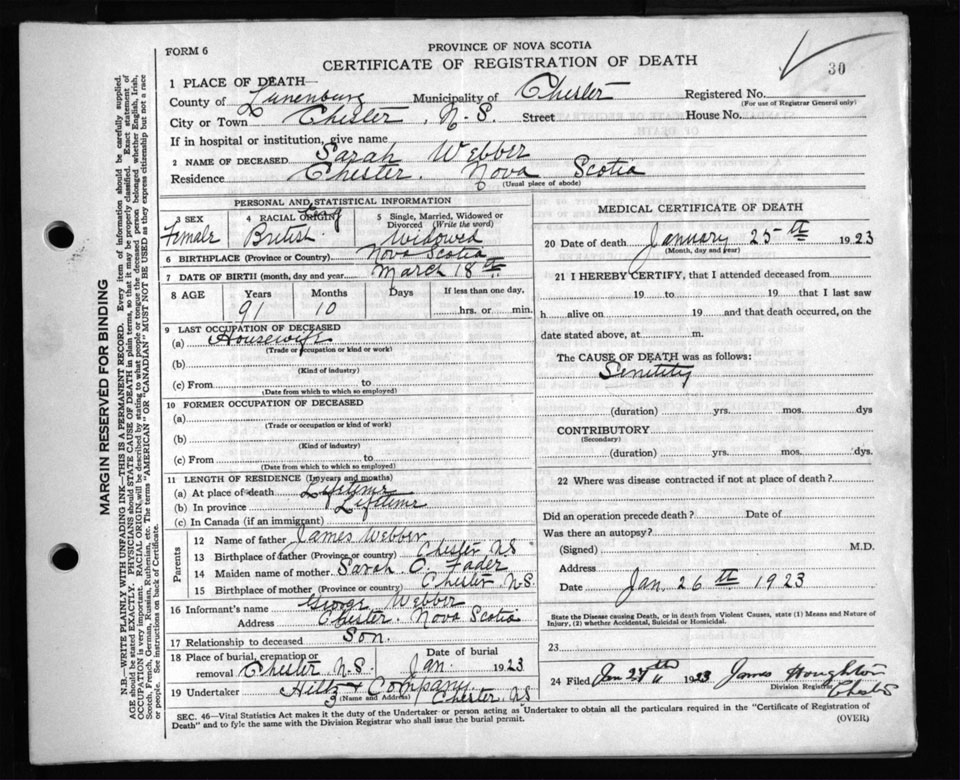 FORM 6
PROVINCE OF NOVA SCOTIA
CERTIFICATE OF REGISTRATION OF DEATH
30
1 PLACE OF DEATH—
County of Lunenburg Municipality of Chester Registered No.
(For use of Registrar General only)
City or Town Chester, N-S. Street House No.
If in hospital or institution, give name
2 NAME OF DECEASED Sarah Webber
Residence Chester. Nova Scotia
(Usual place of abode)
PERSONAL AND STATISTICAL INFORMATION
3 SEX
Female
4 RACIAL ORIGIN
British
5 Single, Married, Widowed or Divorced (Write the word)
Widowed
6 BIRTHPLACE (Province or Country) Nova Scotia
7 DATE OF BIRTH (month, day and year) March 18th
8 AGE Years Months Days If less than one day,
91 10 hrs. or min.
9 LAST OCCUPATION OF DECEASED
(a) Housewife
(Trade or occupation or kind or work)
(b)
(Kind of industry)
(c) From to
(Date from which to which so employed)
10 FORMER OCCUPATION OF DECEASED
(a)
(Trade or occupation or kind of work)
(b)
(Kind of industry)
(c) From to
(Date from which to which so employed)
11 LENGTH OF RESIDENCE (In years and months)
(a) At place of death Lifetime
(b) In province Lifetime
(c) In Canada (if an immigrant)
Parents
12 Name of father James Webber
13 Birthplace of father (Province or country) Chester NS
14 Maiden name of mother Sarah O. Fader
15 Birthplace of mother (Province or country) Chester N-S.
16 Informant's name George Webber
Address Chester. Nova Scotia
17 Relationship to deceased Son.
18 Place of burial, cremation or removal Chester N.S. Date of burial Jan. 1923
19 Undertaker Hiltz & Company
(Name and Address) Chester NS
MEDICAL CERTIFICATE OF DEATH
20 Date of death January 25th 1923
(Month, day and year)
21 I HEREBY CERTIFY, that I attended deceased from
19 to 19 that I last saw
h alive on 19 and that death occurred, on the
date stated above, at m.
The CAUSE OF DEATH was as follows:
(duration) yrs. mos. dys
CONTRIBUTORY
(Secondary)
(duration) yrs. mos. dys.
22 Where was disease contracted if not at place of death?
Did an operation precede death? Date of
Was there an autopsy?
(Signed) M.D.
Address
Date Jan. 26th 1923
State the Disease causing Death, or in death from Violent Causes, state (1) Means and Nature of
Injury, (2) whether Accidental, Suicidal or Homicidal.
23
24 Filed Jan 1923 James Houghton
Division Registrar
Chester
SEC. 46—Vital Statistics Act makes it the duty of the Undertaker or person acting as Undertaker to obtain all the particulars required in the "Certificate of Registration of
Death" and to fyle the same with the Division Registrar who shall issue the burial permit.
(OVER)
MARGIN RESERVED FOR BINDING
N.B.—WRITE PLAINLY WITH UNFADING INK—THIS IS A PERMANENT RECORD. Every item of information should be carefully supplied.
AGE should be stated EXACTLY. PHYSICIANS should STATE CAUSE OF DEATH in plain terms, so that it may be properly classified. Exact statement of
OCCUPATION is very important. RACIAL ORIGIN will be described by stating to what people or tongue the deceased person belonged whether English, Irish,
Scotch, French, German, Russian, Ruthenian, etc. The terms "AMERICAN" OR "CANADIAN" MUST NOT BE USED as they express citizenship but not a race
or people. See instructions on back of Certificate.